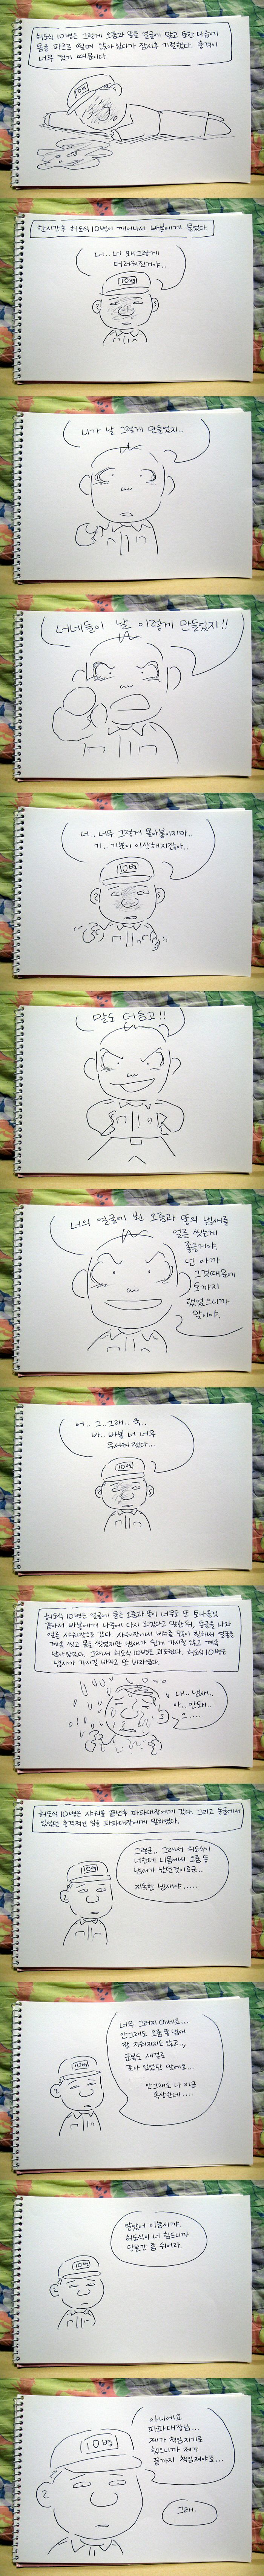 허도식 10번은 그렇게 오줌과 똥을 얼굴에 맞고 토한 다음에
몸을 파르르 떨며 앉아 있다가 잠시후 기절했다. 충격이
너무 컸기 때문이다.
10번
한시간후 허도식 10번이 깨어나서 바불에게 물었다.
너.. 너 왜 그렇게
더러워진거야..
10번
니가 날 그렇게 만들었지..
너네들이 날 이렇게 만들었지!!
너.. 너무 그렇게 몰아붙이지마..
기.. 기분이 이상해지잖아..
10번
말도 더듬고!!
너의 얼굴에 묻은 오줌과 똥의 냄새를
얼른 씻는게
좋을거야.
넌 아까
그것때문에
토까지
했었으니까
말이야.
어.. 그.. 그래.. 욱..
바.. 바불 너 너무
무서워 졌다...
10번
허도식 10번은 얼굴에 묻은 오줌과 똥이 너무도 또 토나올것
같아서 바불에게 나중에 다시 오겠다고 말한 뒤, 동굴을 나와
얼른 샤워장으로 갔다. 샤워장에서 비누를 많이 칠하며 얼굴을
계속 씻고 몸을 씻었지만 냄새가 쉽게 가시질 않고 계속
남아 있었다. 그래서 허도식 10번은 괴로웠다. 허도식 10번은
냄새가 가시길 바라고 또 바라였다.
내.. 냄새..
아.. 안돼..
으.....
허도식 10번은 샤워를 끝낸후 파파대장에게 갔다. 그리고 동굴에서
있었던 충격적인 일을 파파대장에게 말하였다.
10번
그렇군.. 그래서 허도식이
너한테 니 몸에서 오줌 똥
냄새가 났던것이로군..
지독한 냄새야.....
너무 그러지 마세요...
안그래도 오줌 똥 냄새
잘 지워지지도 않고..,
군복도 새걸로
갈아 입었단 말예요..
안그래도 나 지금
속상한데....
10번
알았어 이놈시캬.
허도식이 너 힘드니까
당분간 좀 쉬어라.
10번
아니에요
파파대장님...
제가 책임지기로
했으니까 제가
끝까지 책임져야죠...
10번
그래.